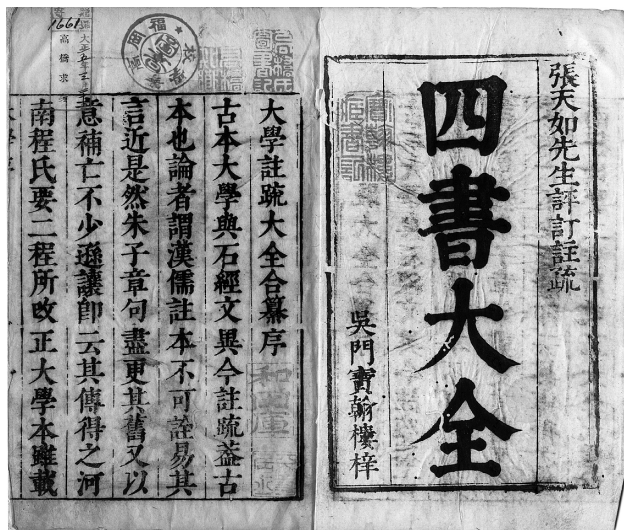 張天如先生評訂註疏
四書大全
吳門寶翰樓梓
大學註疏大全合纂序
古本大學與石經文異今註疏葢古
本也論者謂漢儒註本不可詮易其
言近是然朱子章句盡更其舊又以
意補亡不少遜讓卽云其傳得之河
南程氏要二程所改正大學本雖載
1661
高橋求